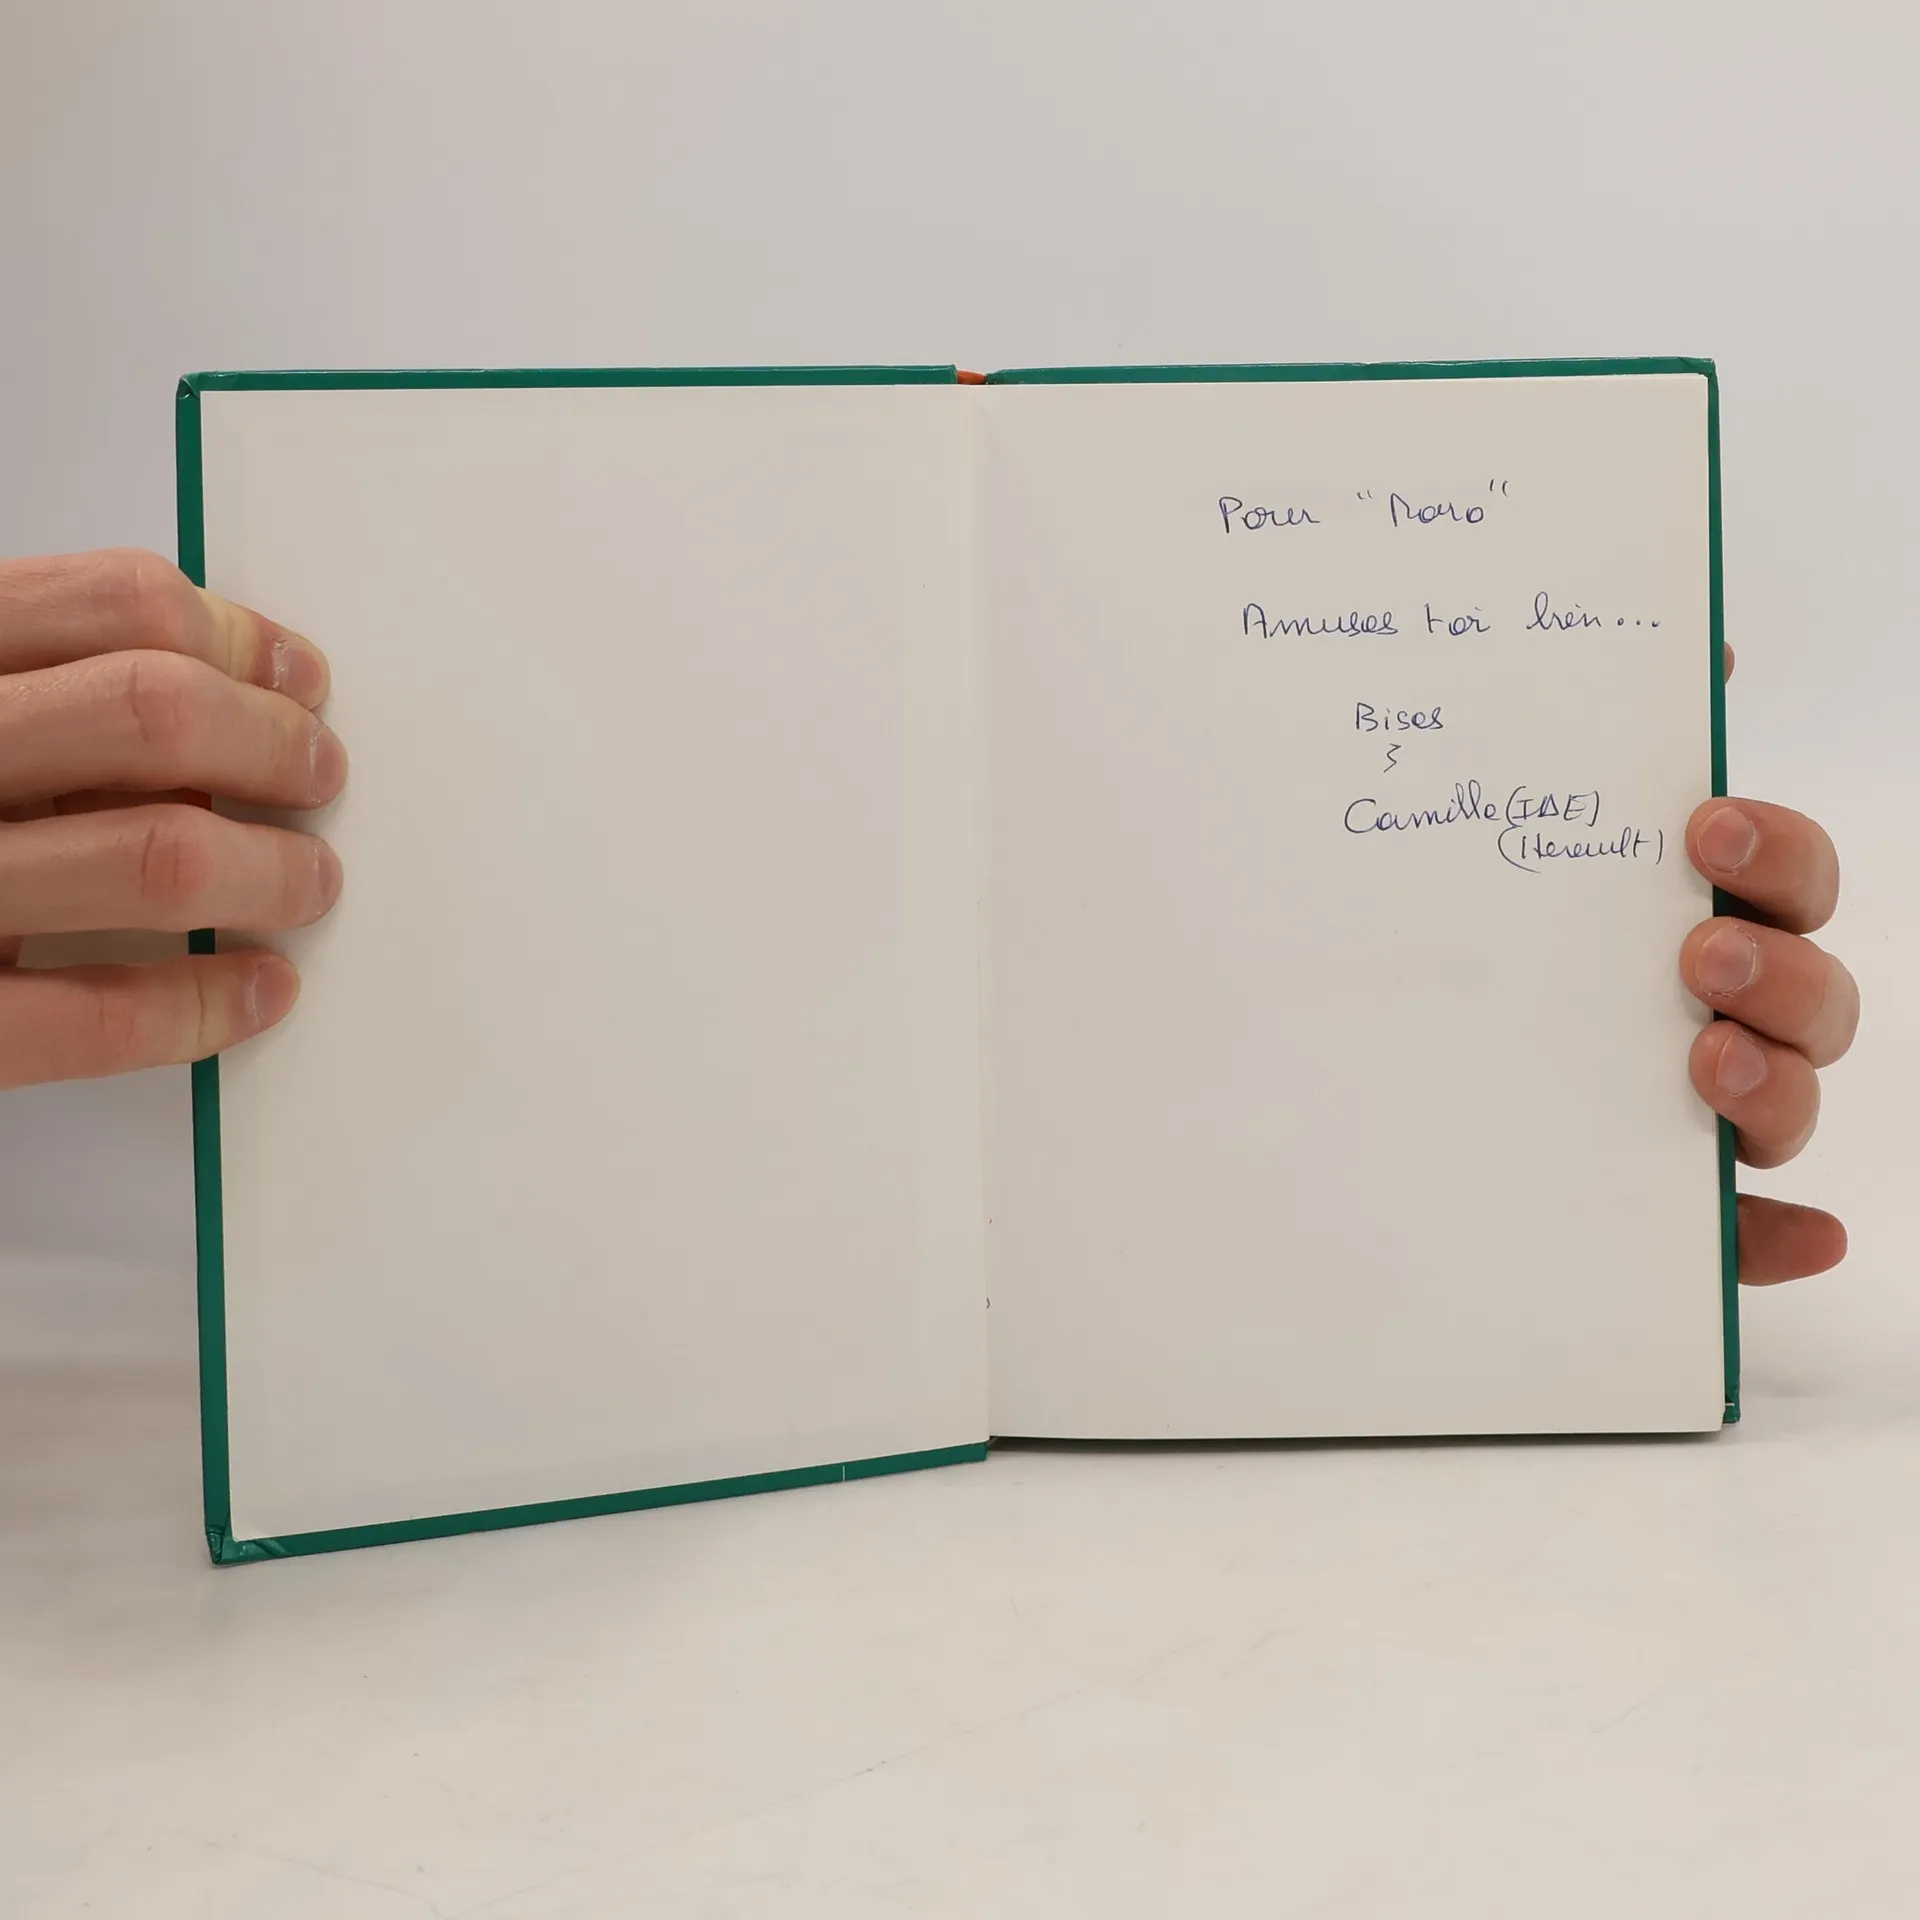 Pour " "
Amuses toi bien...
Bises
Camille (IDE)
(Herault)